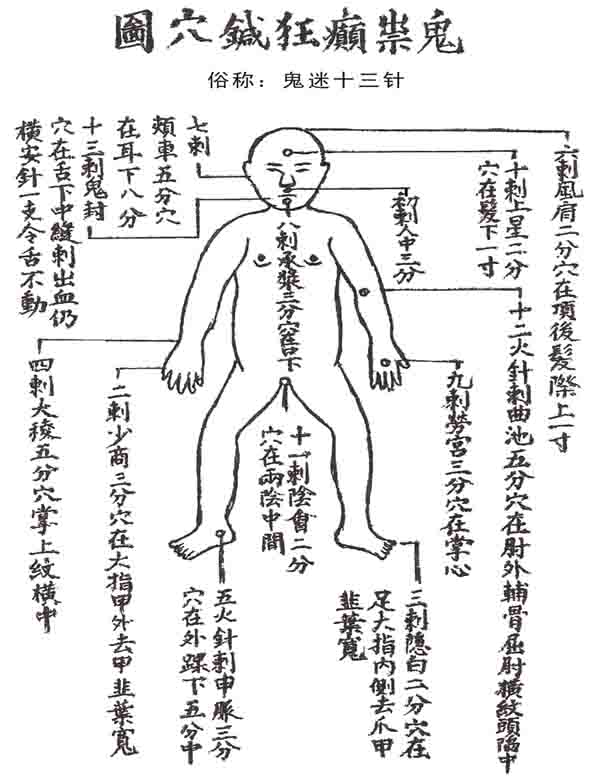 鬼祟癲狂鍼穴圖
俗称：鬼迷十三针
六刺風府二分穴在項後髮際上一寸
十刺上星二分
穴在髮下一寸
十二火針刺曲池五分穴在肘外輔骨屈肘橫紋頭陷中
初刺人中三分
九刺勞宮三分穴在掌心
八刺承漿三分穴唇下
七刺
頰車五分穴
在耳下八分
十三刺鬼封
穴在舌下中縫刺出血仍
橫安針一支令舌不動
三刺隱白二分穴在
足大指内側去爪甲
韭葉寬
十一刺陰會二分
穴在兩陰中間
五火針刺申脈三分
穴在外踝下五分中
二刺少商三分穴在大指甲外去甲韭葉寬
四刺大稜五分穴掌上紋橫中